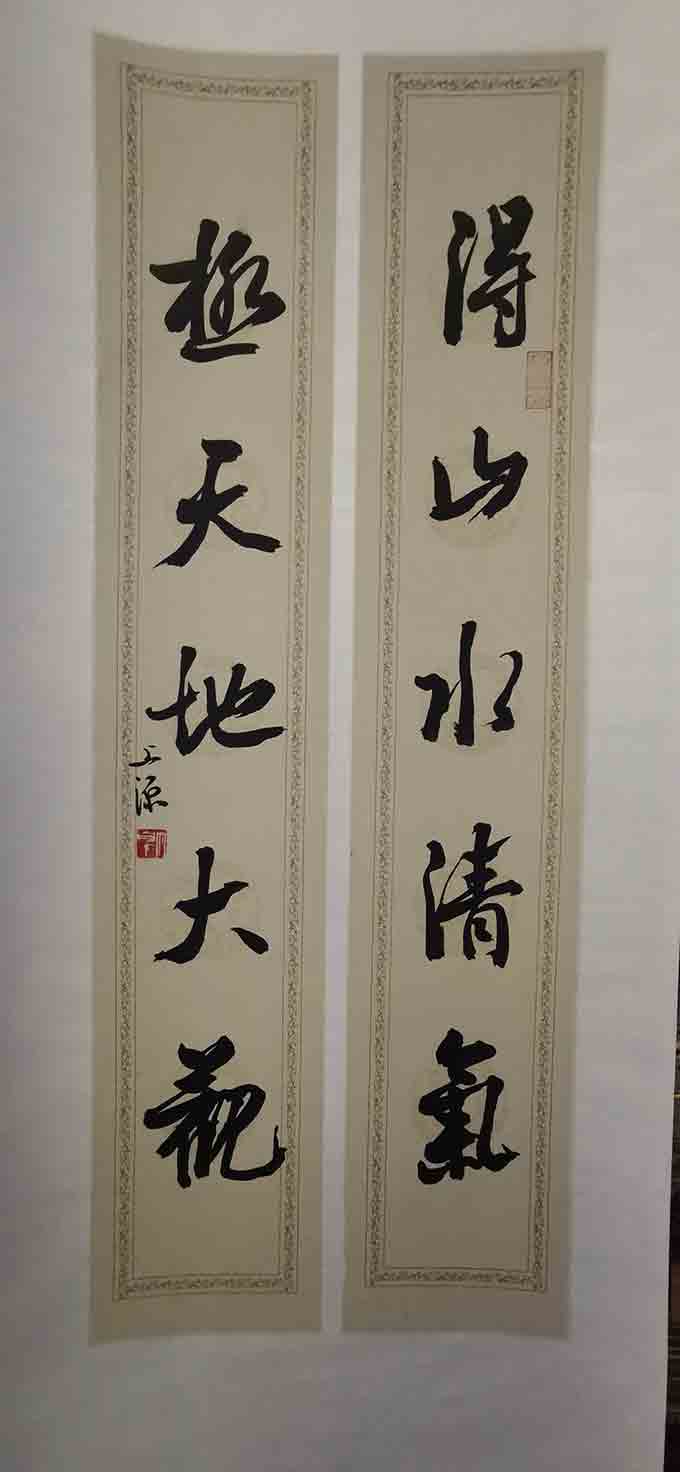 得山水清氣
極天地大觀
上源